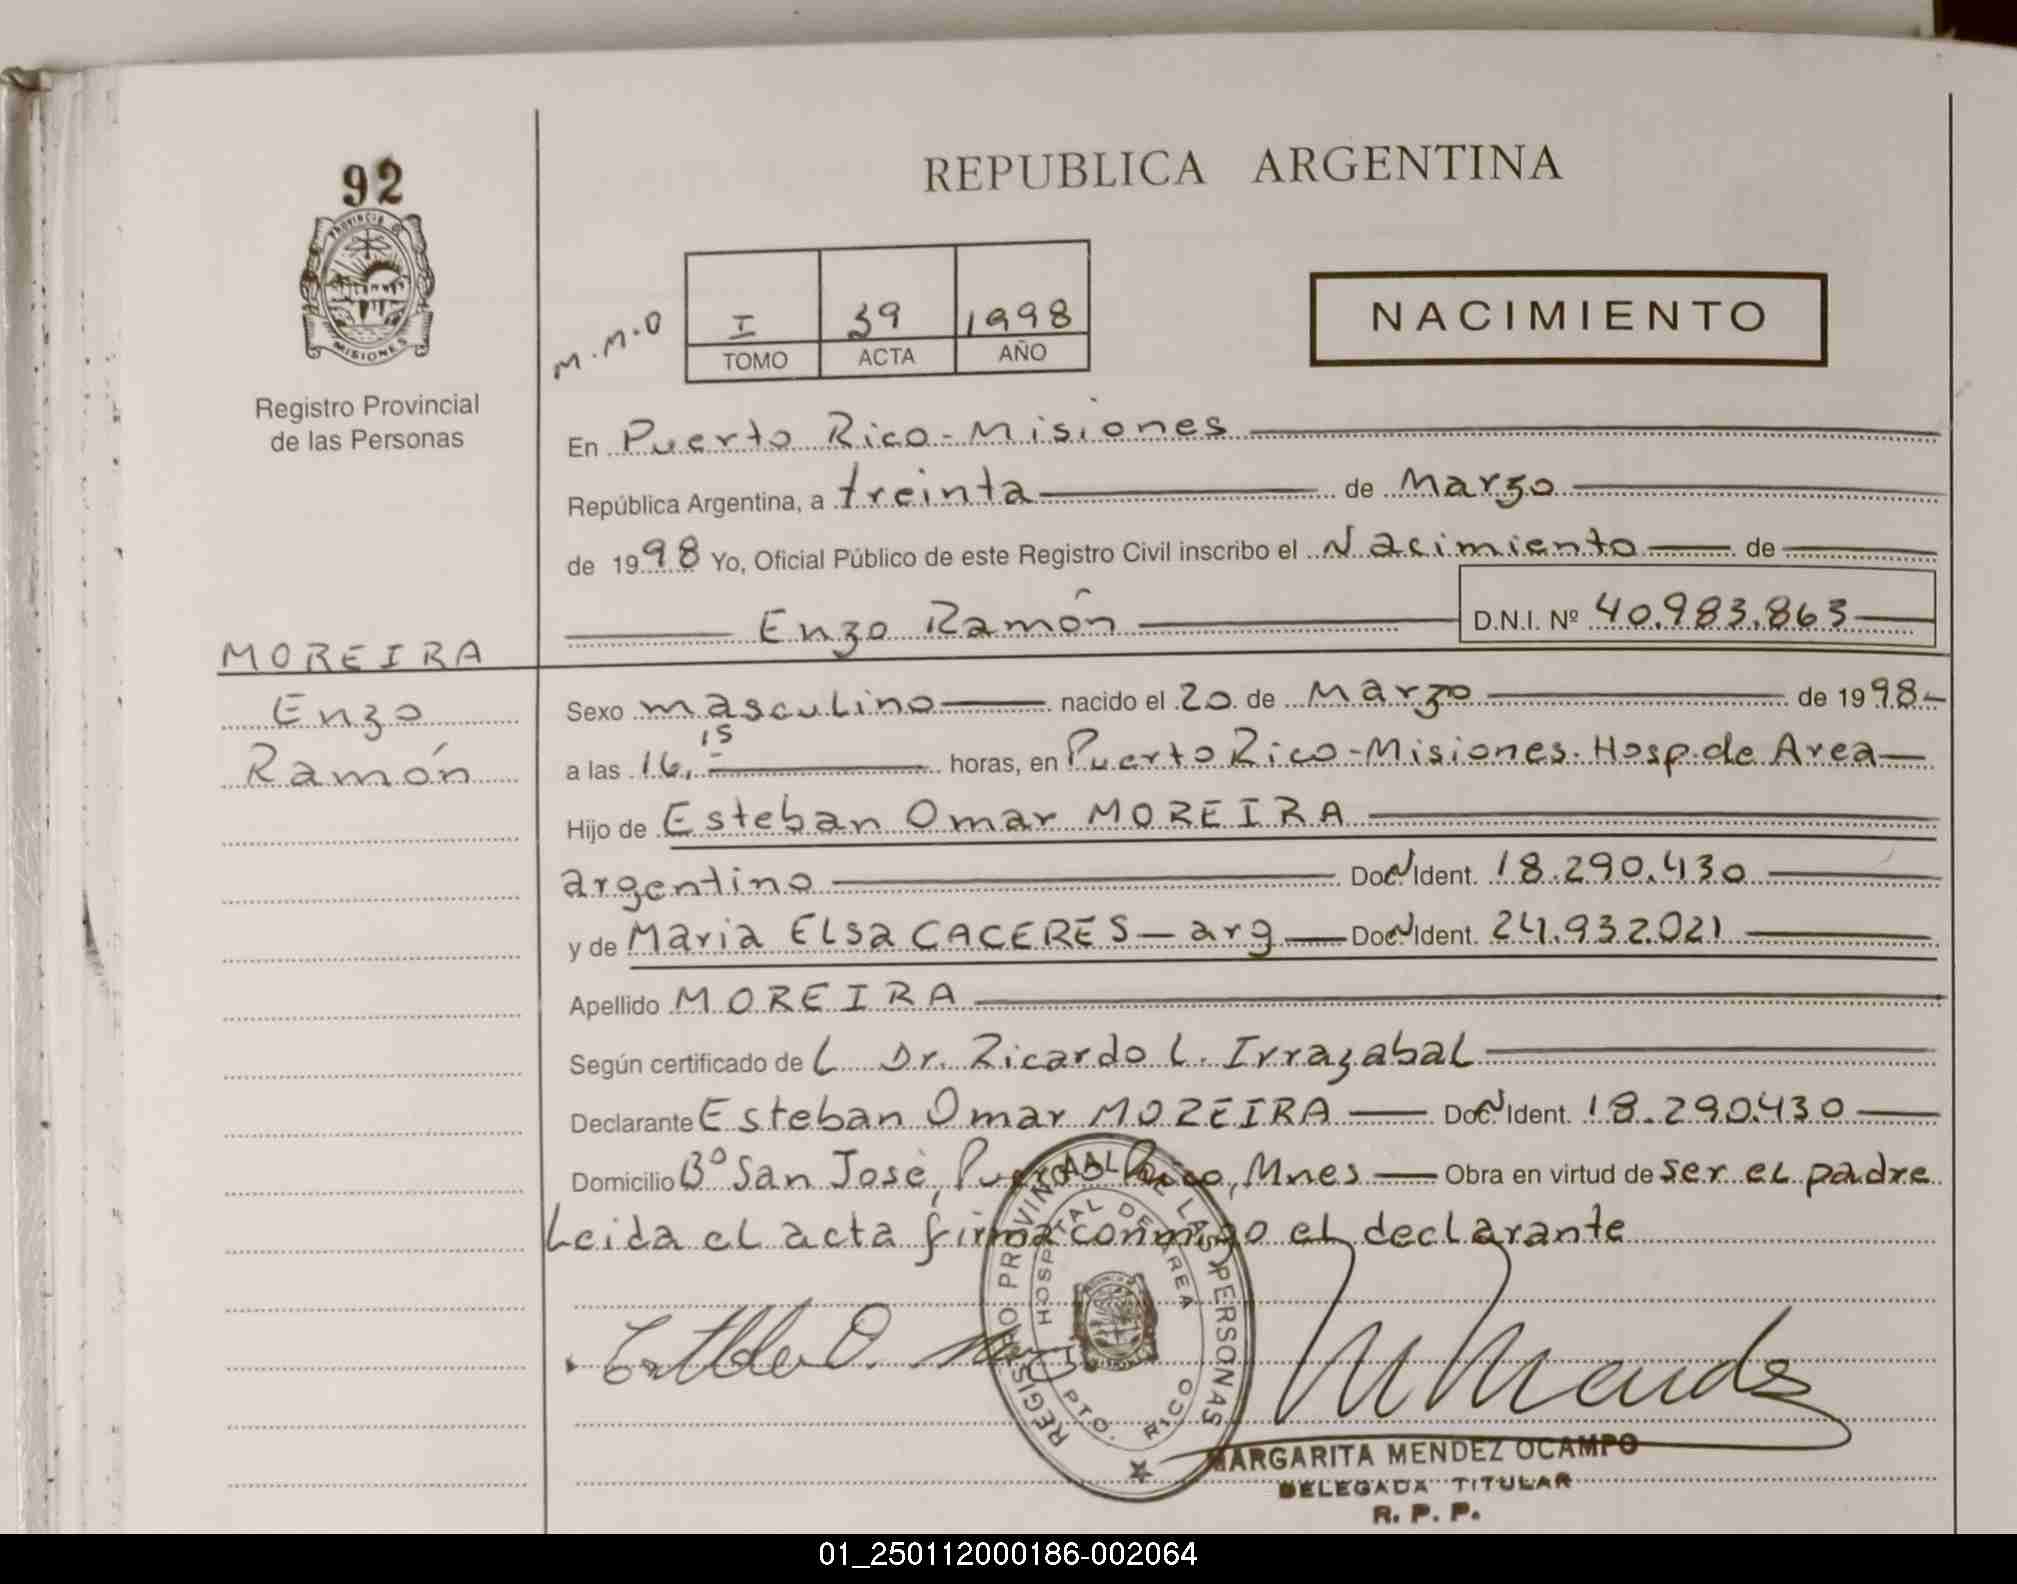 92
PROVINCIA D
MISIONES
Registro Provincial
de las Personas
MOREIRA
Enzo
Ramón
REPUBLICA ARGENTINA
M.M.O
I 39 1998
TOMO ACTA AÑO
NACIMIENTO
En Puerto Rico - Misiones
República Argentina, a treinta de Marzo
de 1998 Yo, Oficial Público de este Registro Civil inscribo el Nacimiento de
Enzo Ramón D.N.I. Nº 40.983.863
Sexo masculino nacido el 20 de Marzo de 1998-
a las 16,15 horas, en Puerto Rico - Misiones. Hosp. de Area
Hijo de Esteban Omar MOREIRA
argentino Doc. Ident. 18.290.430
y de Maria ELsa CACERES - arg Doc. Ident. 24.932.021
Apellido MOREIRA
Según certificado de L Dr. Ricardo L. Irrazabal
Declarante Esteban Omar MOREIRA Doc. Ident. 18.290.430
Domicilio Bº San José, Puerto Rico, Mnes Obra en virtud de ser el padre
Leida el acta firma conmigo el declarante
REGISTRO PROVINCIAL DE LAS PERSONAS
HOSPITAL DE AREA
PTO. RICO
MARGARITA MENDEZ OCAMPO
DELEGADA TITULAR
R. P. P.
01_250112000186-002064